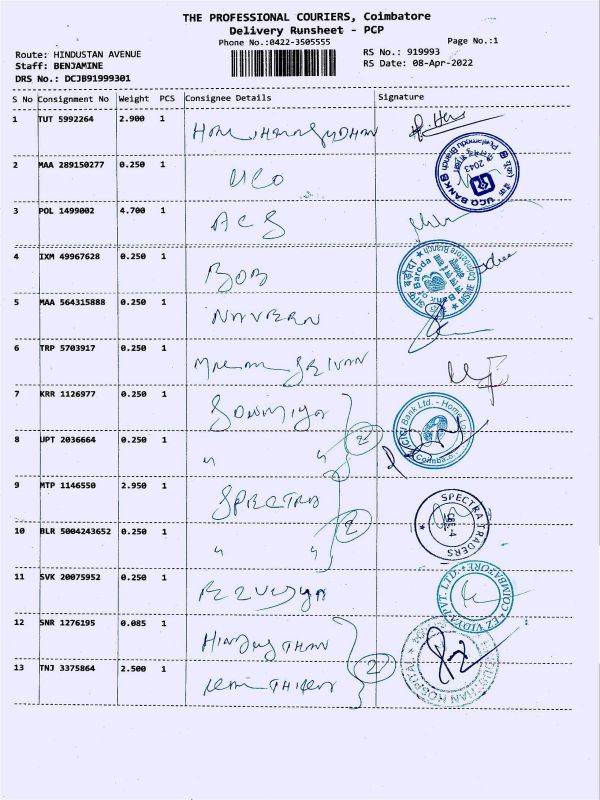 THE PROFESSIONAL COURIERS, Coimbatore
Delivery Runsheet - PCP
Phone No.:0422-3505555
Page No.:1
Route: HINDUSTAN AVENUE
RS No.: 919993
Staff: BENJAMINE
RS Date: 08-Apr-2022
DRS No.: DCJB91999301
S No Consignment No Weight PCS Consignee Details Signature
1 TUT 5992264 2.900 1
2 MAA 289150277 0.250 1 UCO
UCO BANK
2043
3 POL 1499002 4.700 1 ACS
4 IXM 49967628 0.250 1 BOB
Bank of Baroda
MSME Coimbatore Branch
5 MAA 564315888 0.250 1 NAVEEN
6 TRP 5703917 0.250 1
7 KRR 1126977 0.250 1 Sowmiya
ICICI Bank Ltd. - Home
8 UPT 2036664 0.250 1 " " 2
9 MTP 1146550 2.950 1 SPECTRA
SPECTRA TRADERS
CBE-4
10 BLR 5004243652 0.250 1 " " 2
11 SVK 20075952 0.250 1
EZVIDYA PVT. LTD. COIMBATORE
12 SNR 1276195 0.085 1
HOSPITAL
13 TNJ 3375864 2.500 1 2